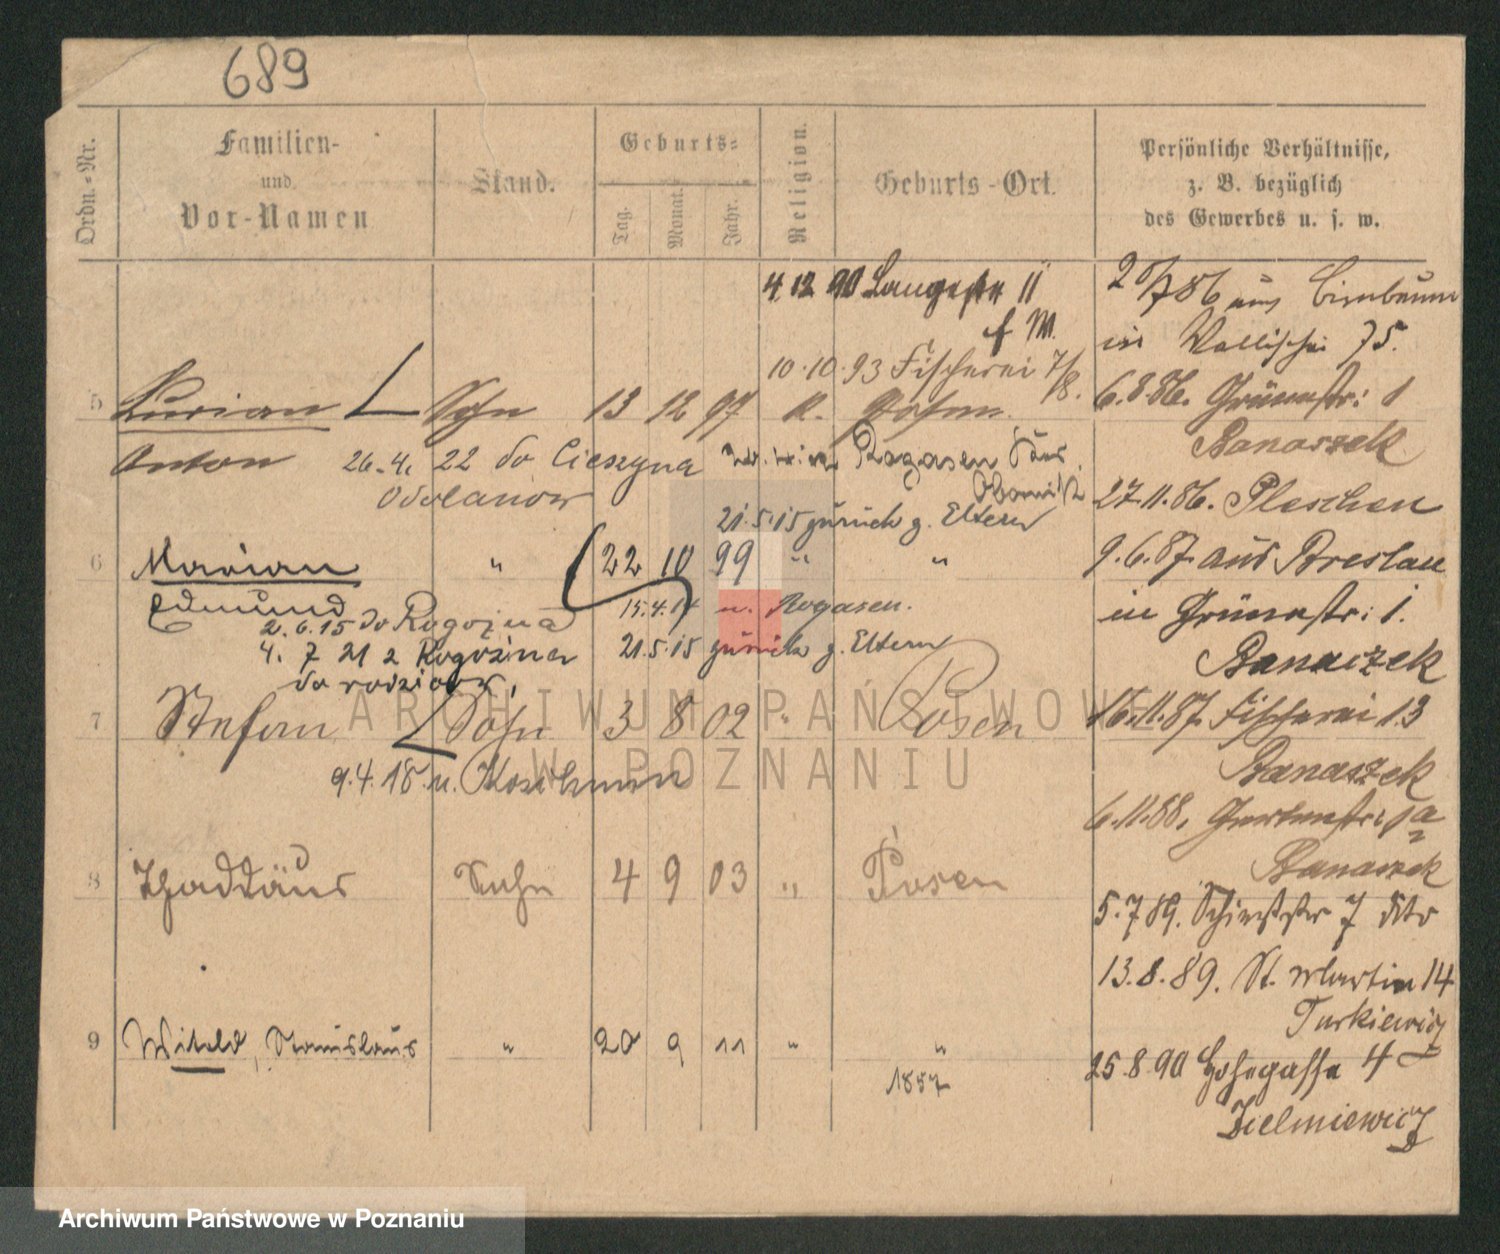 689
Ordn.-Nr.
Familien-
und
Vor-Namen
Stand.
Geburts-
Tag.
Monat.
Jahr.
Religion.
Geburts-Ort.
Persönliche Verhältnisse,
z. B. bezüglich
des Gewerbes u. s. w.
4 12 90 Langestr 11
b/M.
10.10.93 Fischerei 7/8.
5 Lucian Sohn 13 12 97 K. Posen
Anton 26.4. 22 do Cieszyna
Odolanów
Rogasen
Obornik
21.5.15 zurück z. Eltern
6 Marian " 22 10 99 " "
Edmund
2.6.15 do Rogozna
15.4.14 n. Rogasen.
4. 7 21 z Rogoźna
do rodziców,
21.5.15 zurück z. Eltern
7 Stefan Sohn 3 8 02 " Posen
9.4.18 n. Koschmin
8 Thaddäus Sohn 4 9 03 " Posen
9 Witold, Stanislaus " 20 9 11 " "
1857
20/7 86 aus Birnbaum
in Wallischei 75.
6.8.86. Grünestr: 1
Banaszek
27.11.86. Pleschen
9.6.87. aus Breslau
in Grünestr: 1.
Banaszek
16.11.87. Fischerei 13
Banaszek
6.11.88. Gartenstr: 1a
Banaszek
5.7 89. Schießstr 7 dito
13.8.89. St. Martin 14
Turkiewicz
25.8.90 Hohegasse 4
Zielniewicz
ARCHIWUM PAŃSTWOWE
W POZNANIU
Archiwum Państwowe w Poznaniu